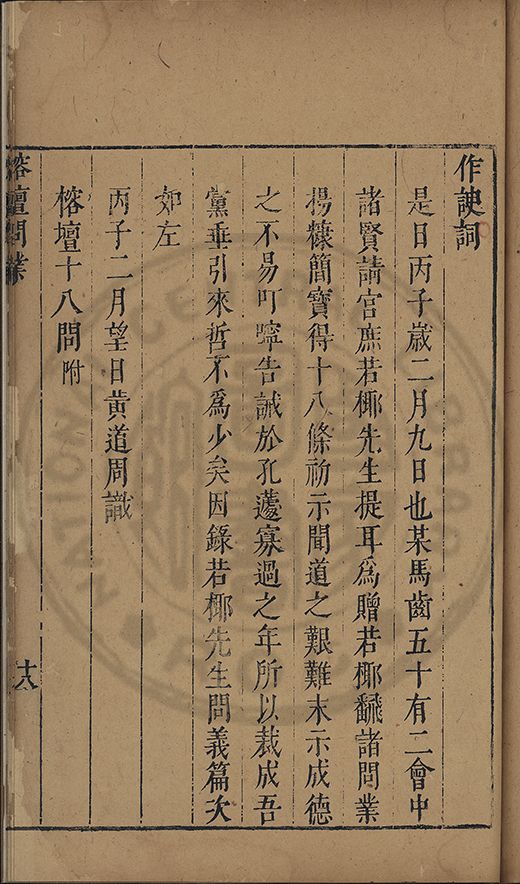 作諛詞
是日丙子嵗二月九日也某馬齒五十有二會中
諸賢請宫庶若椰先生提耳爲贈若椰飜諸問業
揚糠簡寶得十八條初示聞道之艱難末示成德
之不易叮嚀告誡於孔蘧寡過之年所以裁成吾
黨垂引來哲不爲少矣因錄若椰先生問義篇次
如左
丙子二月望日黄道周識
榕壇十八問附
榕壇問業
十八